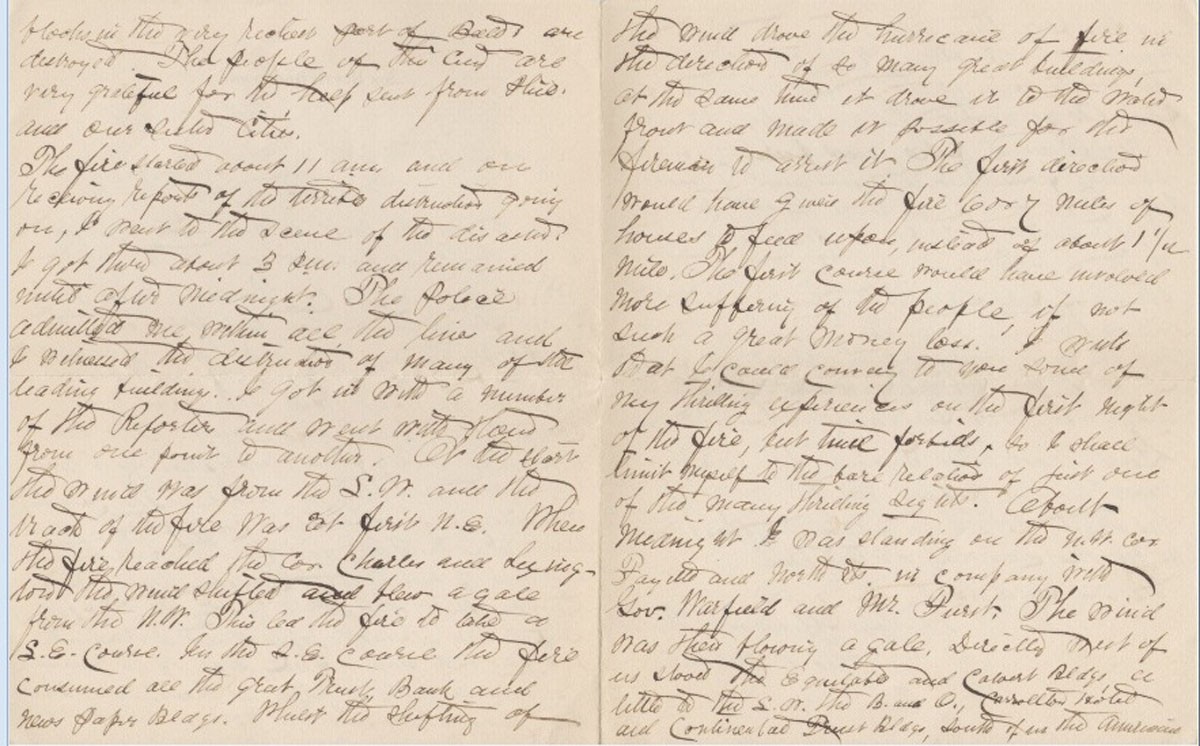 blocks in the very richest part of Balto are
destroyed. The people of this City are
very grateful for the help sent from Phila.
and our sister Cities.
The fire started about 11 am and on
receiving reports of the terrible distruction going
on, I went to the scene of the disaster.
I got there about 3 p.m. and remained
until after Midnight. The Police
admitted me within all the lines and
I witnessed the distruction of many of the
leading buildings. I got in with a number
of the Reporters and went with them
from one point to another. At the start
the wind was from the S.W. and the
track of the fire was at first N.E. When
the fire reached the Cor Charles and Lexing-
ton the wind shifted and blew a gale
from the N.W. This led the fire to take a
S.E. Course. In the S.E. course the fire
consumed all the great Trust, Bank and
news paper Bldgs. Whilst the shifting of
the wind drove the hurricane of fire in
the direction of so many great buildings,
at the same time it drove it to the water
front and made it possible for the
firemen to arrest it. The first direction
would have given the fire 6 or 7 miles of
houses to feed upon, instead of about 1 1/2
mile. The first course would have involved
more suffering of the people, if not
such a great money loss. I wish
that I could convey to you some of
my thrilling experiences on the first night
of the fire, but time forbids, so I shall
limit myself to the bare relation of just one
of the many thrilling sights. About
midnight I was standing on the N.W. cor
Fayette and North Sts. in company with
Gov. Warfield and Mr. Furst. The wind
was then blowing a gale. Directly west of
us stood the Equitable and Calvert Bldgs, a
little to the S.W. the B. and O., Carrollton Hotel
and Continental Trust Bldgs, South of us the American